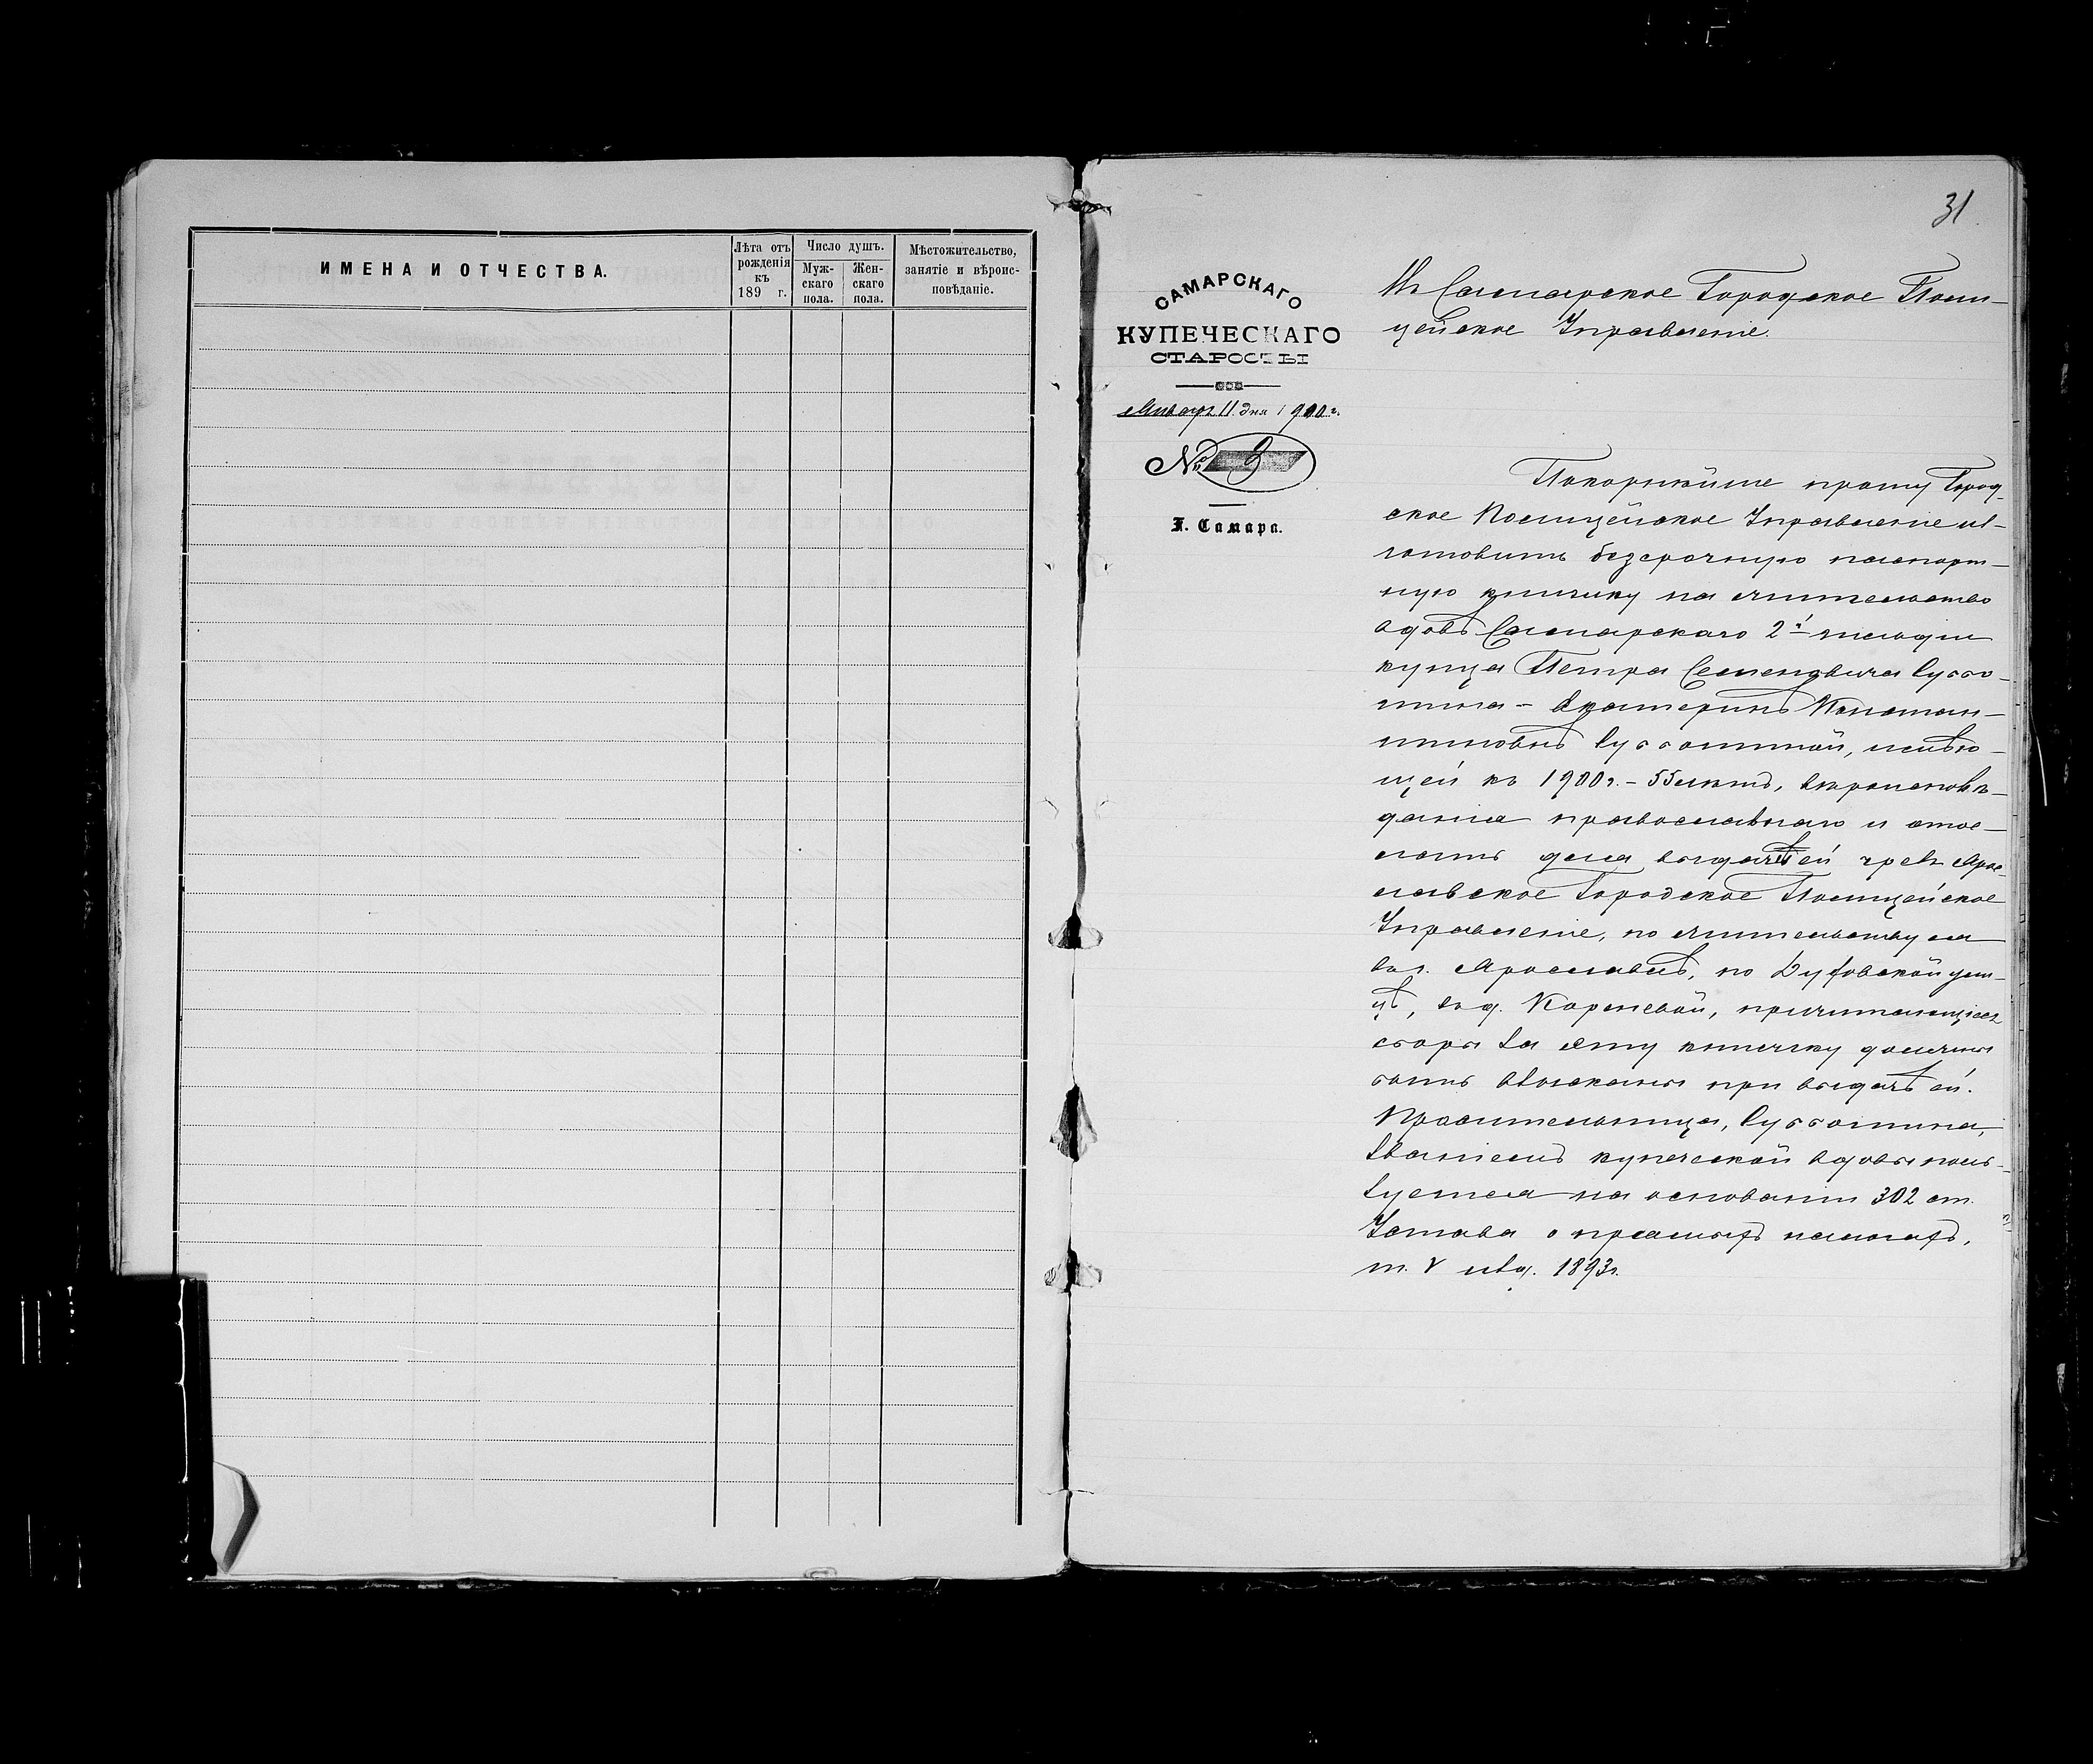 ИМЕНА И ОТЧЕСТВА.
Лѣта отъ
рожденія
къ
189 г.
Число душъ.
Муж-
скаго
пола.
Жен-
скаго
пола.
Мѣстожительство,
занятіе и вѣроис-
повѣданіе.
31
САМАРСКАГО
КУПЕЧЕСКАГО
СТАРОСТЫ
Января 11 дня 1900 г.
№ 3
Г. Самара.
Въ Самарское Городское Поли-
цейское Управленіе.
Покорнѣйше прошу Город-
ское Полицейское Управленіе из-
готовить безсрочную паспорт-
ную книжку на жительство
вдовѣ Самарскаго 2й гильдіи
купца Петра Семеновича Суббо-
тина - Екатеринѣ Констан-
тиновнѣ Субботиной, имѣю-
щей къ 1900 г. - 55 лѣтъ, вѣроисповѣ-
данія православнаго и отос-
лать для выдачи ей чрезъ Яро-
славское Городское Полицейское
Управленіе, по жительству ея
въ г. Ярославлѣ, по Духовской ули-
цѣ, въ д. Корневой, причитающіеся
сборы за эту книжку должны
быть взысканы при выдачѣ ей.
Просительница, Субботина,
званіемъ купеческой вдовы поль-
зуется на основаніи 302 ст.
Устава о прямыхъ налогахъ,
т. V изд. 1893 г.